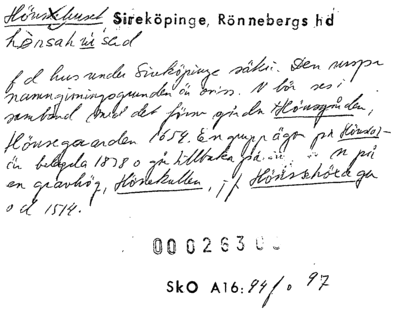 Hönsahuset Sireköpinge, Rönnebergs hd
hönsahúsəd
f d hus under Sireköpinge säteri. Den urspr
namngivningsgrunden är oviss. N bör ses i
samband med det förr gårdn Hönsgården,
Hönsegaarden 1654. En grupp ägor på Höns-
är belagda 1838 o går tillbaka på
en gravhög, Hönekullen, jf Hönsehöta ga
o d 1514.
000263
SkO A16: 94 f o 97